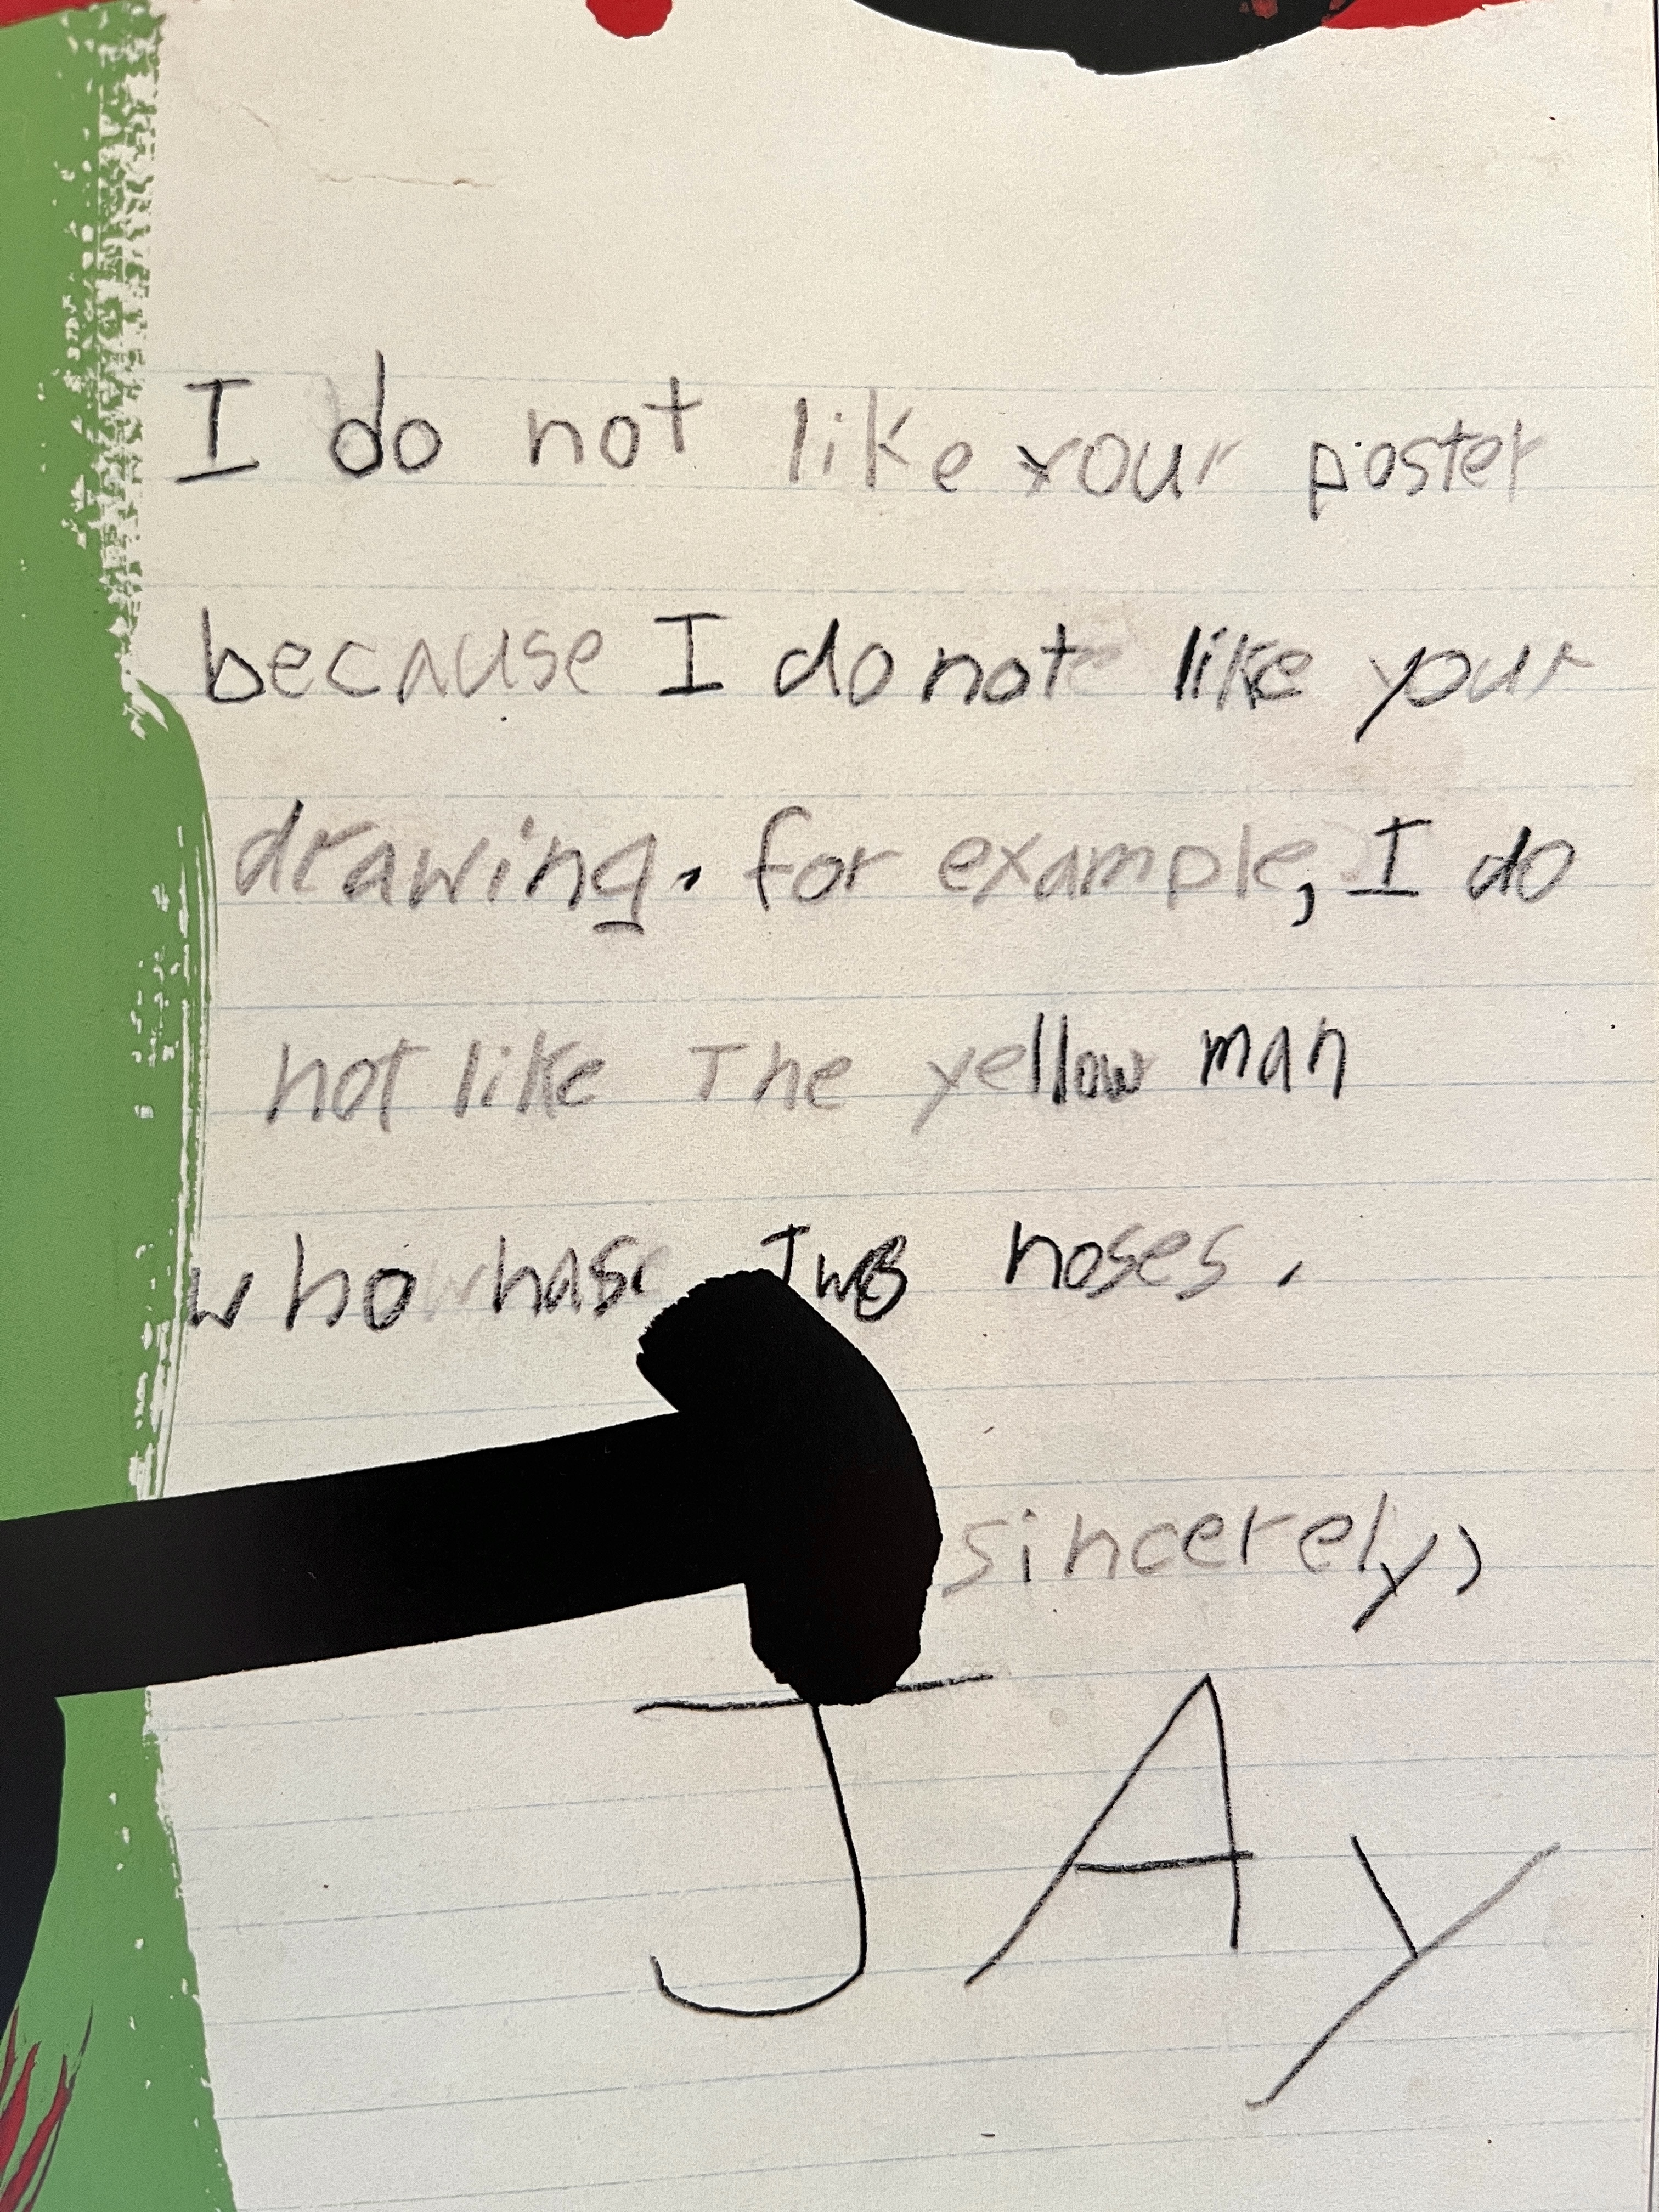 I do not like your poster
because I do not like your
drawing. for example, I do
not like The yellow man
who hase Two noses.
sincerely,
JAy